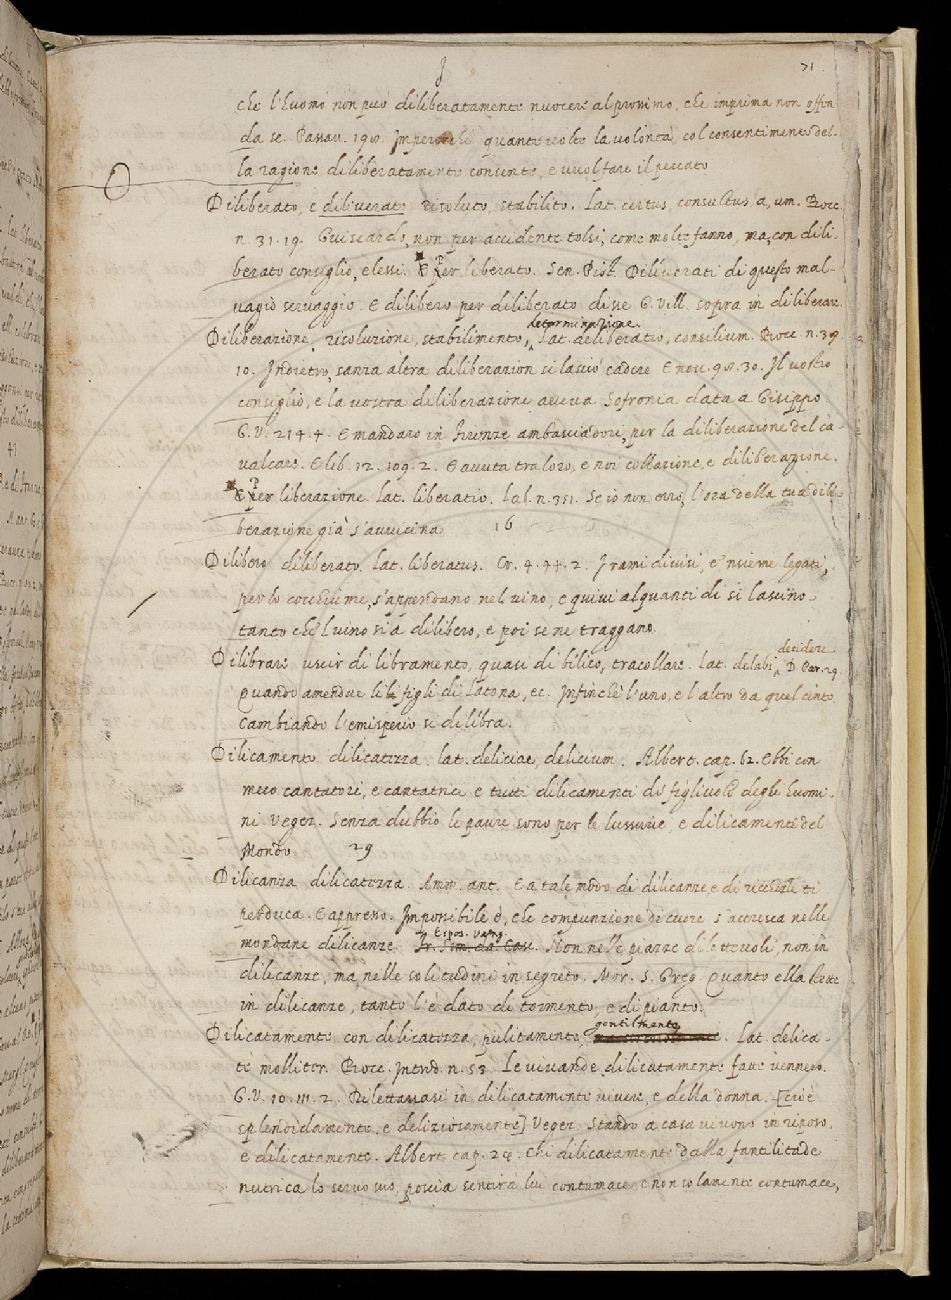 71
che l'huomo non può diliberatamente nuocere al prossimo, che imprima non offen
da se. Passau. 190. Imperocchè quante volte la volontà, col consentimento del-
la ragione diliberatamente consente, e vuol fare il peccato
Diliberato, e diliverato risoluto, stabilito. Lat. certus, consultus a, um. Bocc.
n. 31. 19. Guiscardo, non per accidente tolsi, come molte fanno, ma, con dili-
berato consiglio, elessi. E Per liberato. Sen. Pist. Diliverati di questo mal-
vagio servaggio. E dilibero per diliberato disse G. Vill. sopra in diliberare.
determinazione
Diliberazione, risoluzione, stabilimento, Lat. deliberatio, consilium. Bocc. n. 39.
10. Indietro, sanza altra diliberazion si lasciò cadere. E nov. 98. 30. Il vostro
consiglio, e la vostra diliberazione aveva Sofronia data a Gisippo
G. V. 214. 4. E mandaro in Firenze ambasciadori, per la diliberazione del ca-
valcare. E lib. 12. 109. 2. E avuta tra loro, e noi collazione, e diliberazione.
E Per liberazione. lat. liberatio. Lab. n. 351. Se io non erro, l'ora della tua dili-
berazione già s'avvicina 16
Dilibero diliberato. lat. liberatus. Cr. 4. 44. 2. I rami divisi, e 'nsieme legati,
per lo cocchiume, s'appendano nel vino, e quivi alquanti dì si lascino
tanto che 'l vino sia dilibero, e poi se ne traggano.
decidere
Dilibrare uscir di libramento, quasi di bilico, tracollare. lat. delabi, D. Par. 29.
Quando amendue li figli di Latona, ec. Infinchè l'uno, e l'altro da quel cinto
Cambiando l'emisperio si dilibra.
Dilicamento dilicatezza. lat. deliciae, delicium. Albert. cap. 62. Ebbi con
meco cantatori, e cantatrici e tutti dilicamenti de' figlivoli degli huomi-
ni Vegez. Senza dubbio le paure sono per le lussurie, e dilicamenti del
Mondo 29
Dilicanza dilicatezza. Amm. ant. E a tale modo di dilicanze, e di ti
perduca. E appresso. Impossibile è, che compunzione di cuore s'accresca nelle
Espos. Vang.
mondane dilicanze. Fr. Sim. da Casc. Non nelle piazze dilettevoli, non in
dilicanze, ma, nelle solitudini in segreto. Mor. S. Greg. Quanto ella stette
in dilicanze, tanto l'è dato di tormento, e di pianto.
gentilmente
Dilicatamente con dilicatezza, pulitamente, . Lat. delica-
tè molliter. Bocc. Introd. n. 53. Le vivande dilicatamente fatte vennero.
G. V. 10. 111. 2. Dilettavasi in dilicatamente vivere, e della donna. [cioè
splendidamente, e deliziosamente] Vegez. Stando a casa vivono in riposo,
e dilicatamente. Albert. cap. 24. Chi dilicatamente dalla fantilitade
nutrica lo servo suo, poscia sentirà lui contumace, e non solamente contumace,